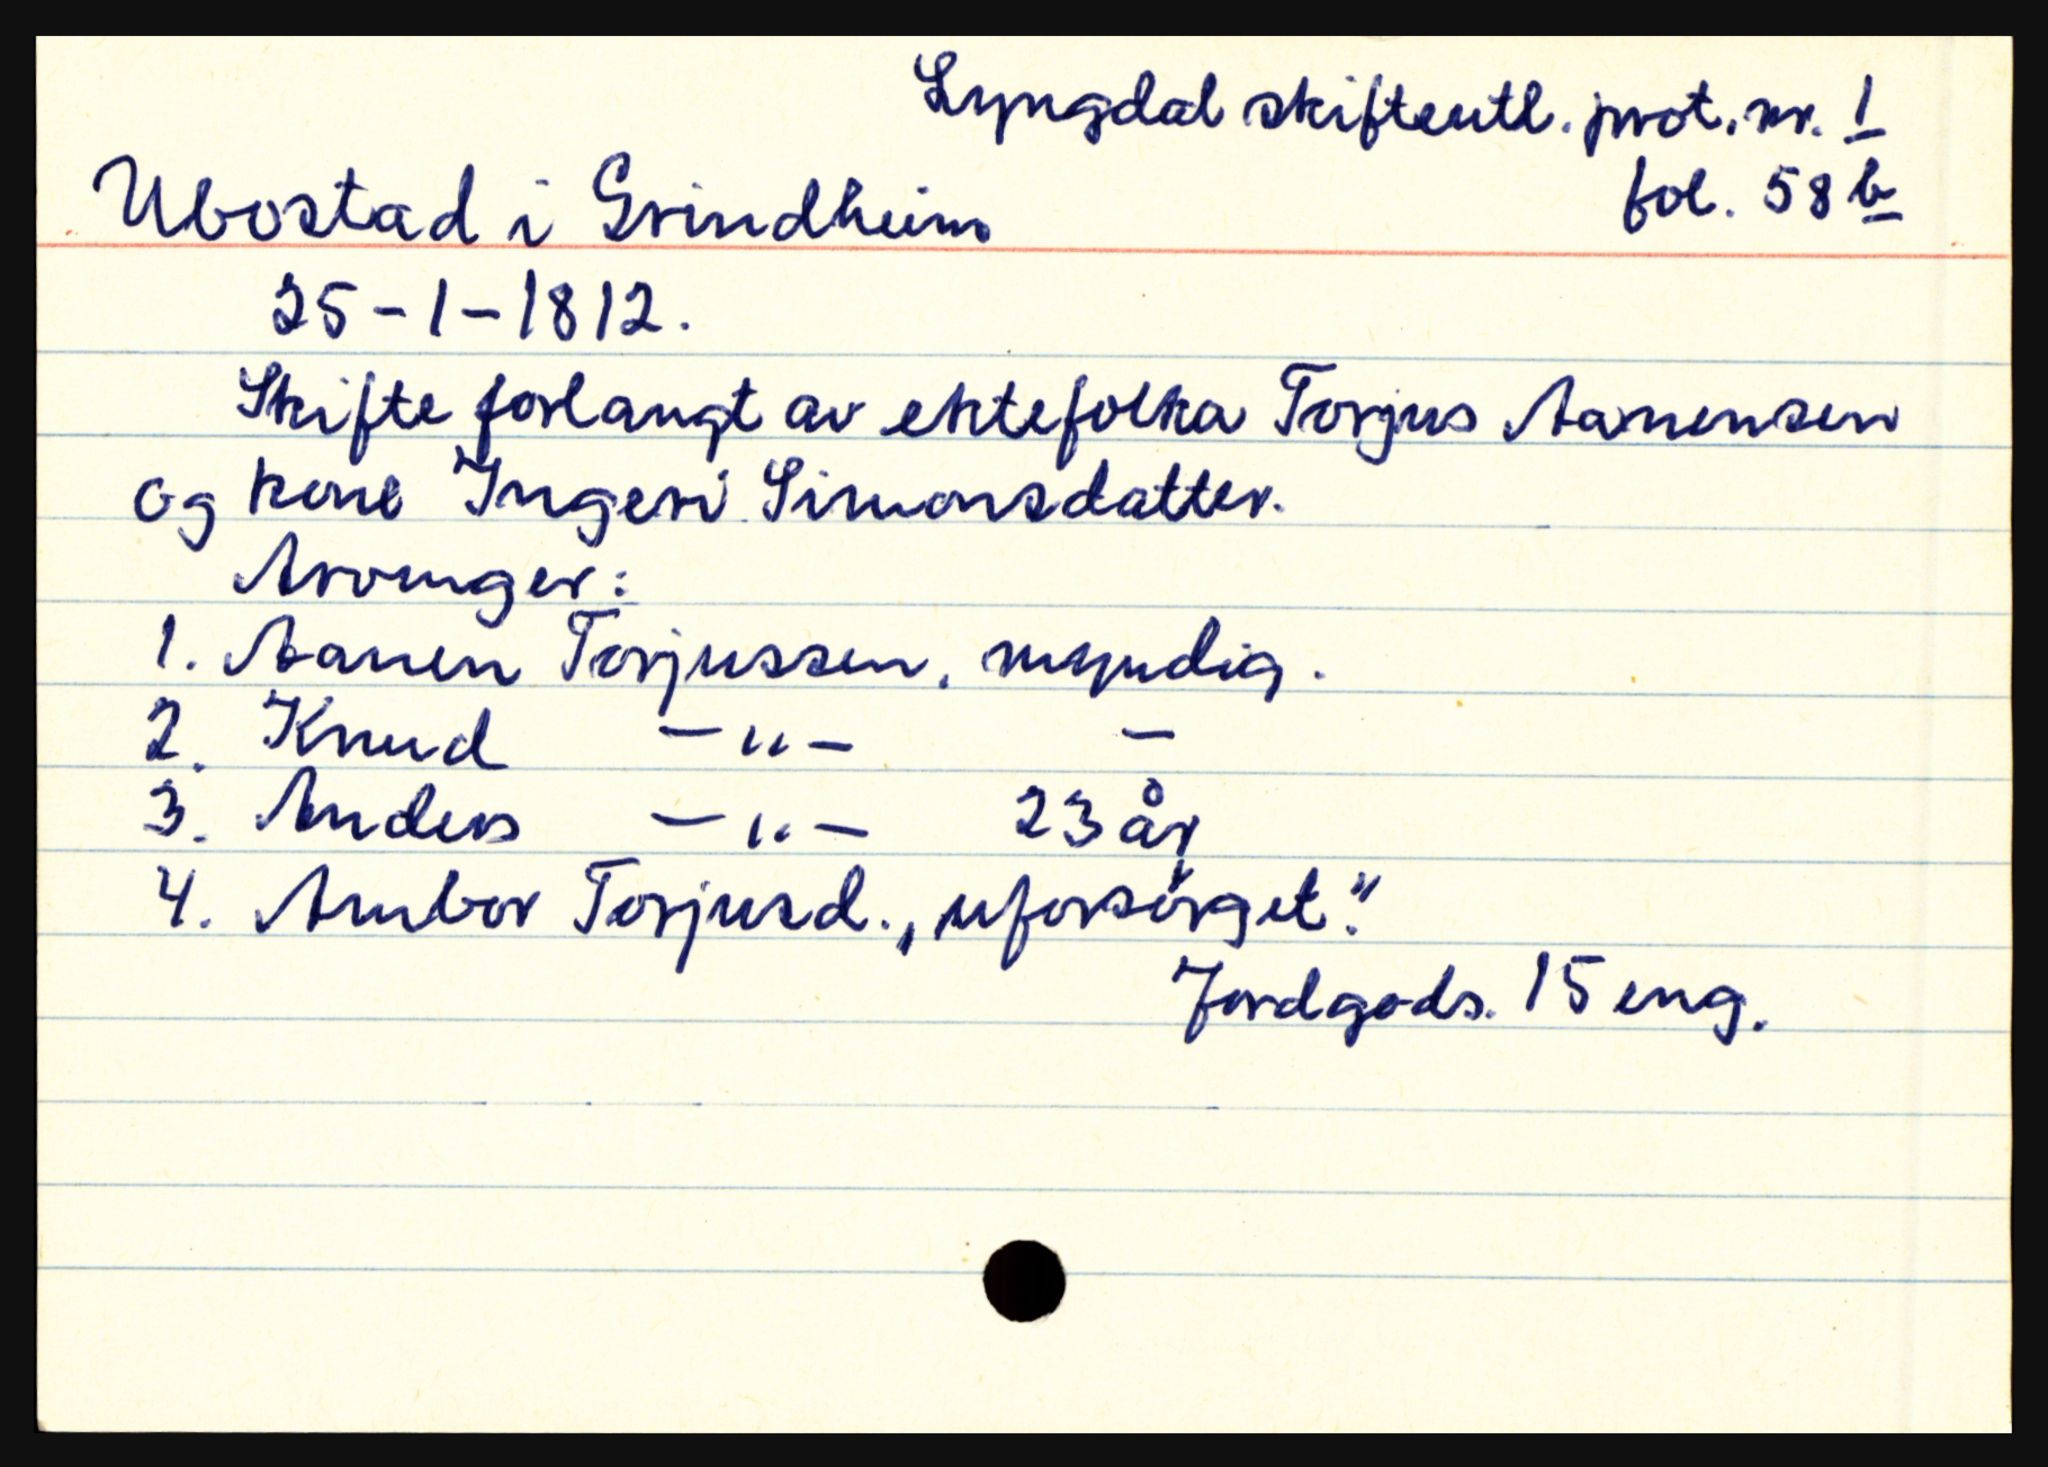 Lyngdal skifteutl. prot. nr. 1
Ubostad i Grindheim fol. 58 b
25-1-1812.
Skifte forlangt av ektefolka Torjus Aanensen
og kone Ingeri Simonsdatter.
Arvinger:
1. Aanen Torjussen, myndig.
2. Knud -"- -
3. Anders -"- 23 år
4. Anbor Torjusd., „uforsörget".
Jordgods. 15 eng.